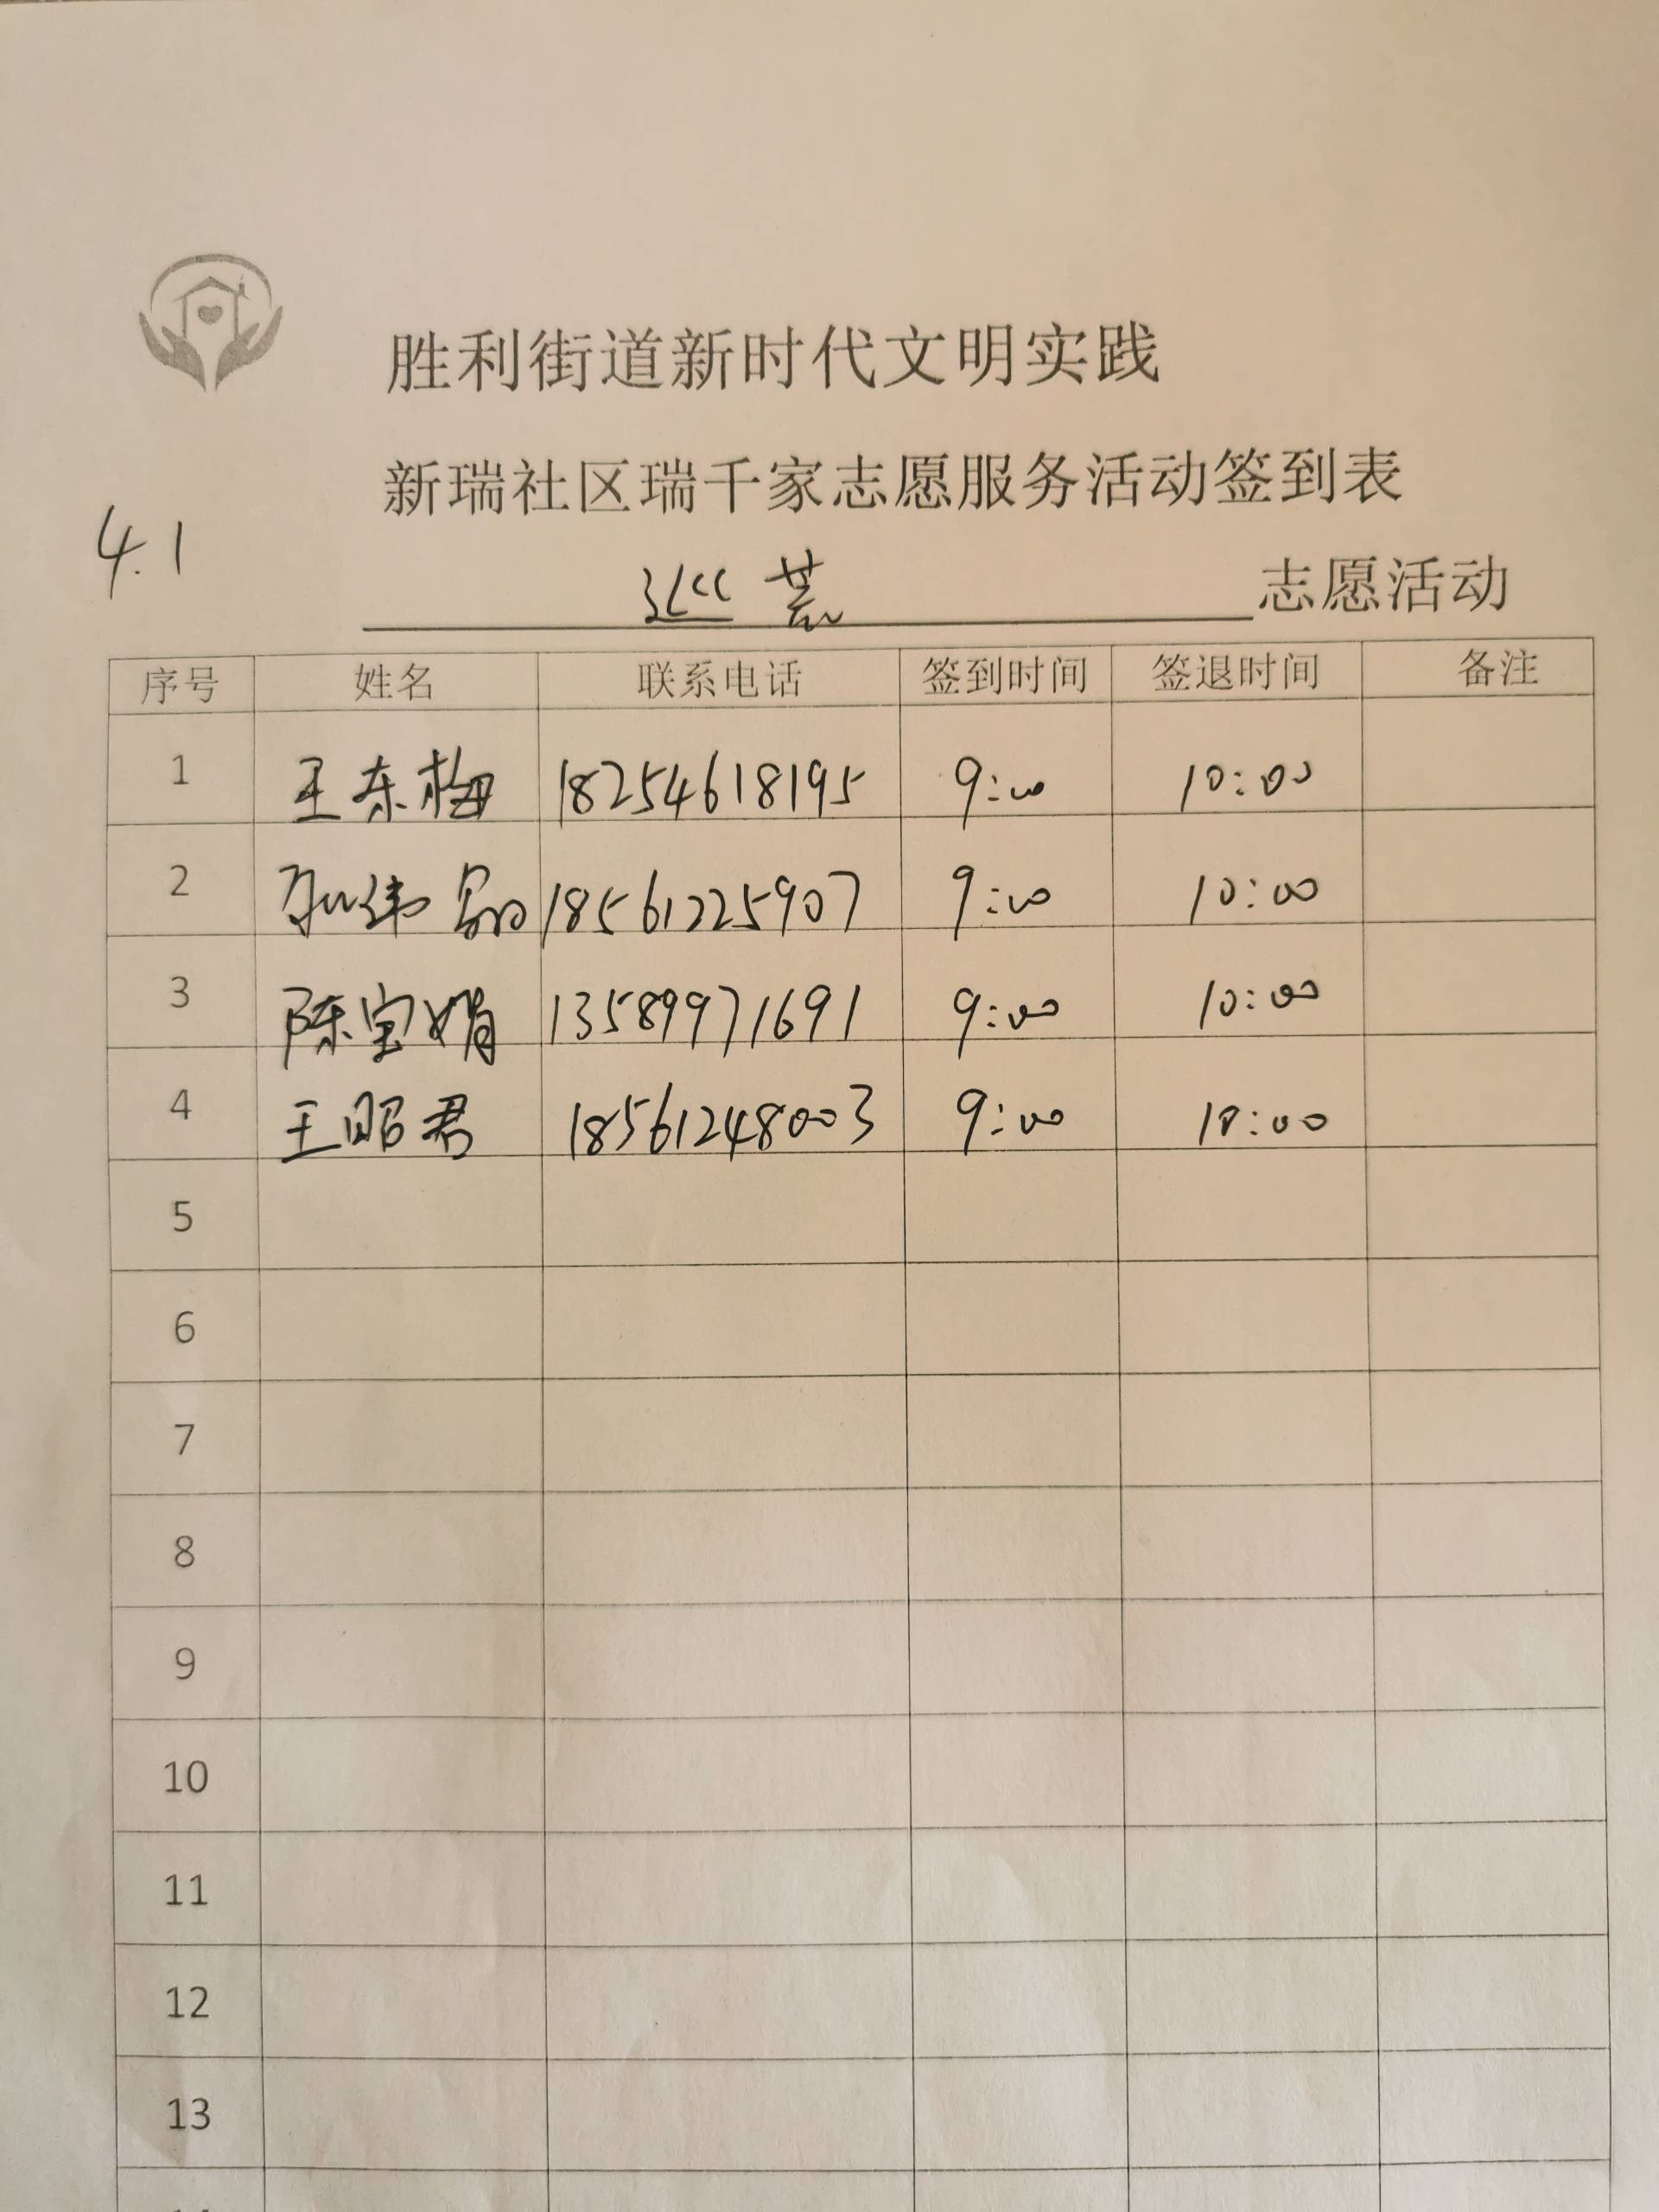 胜利街道新时代文明实践
新瑞社区瑞千家志愿服务活动签到表
4.1
巡芸 志愿活动
序号 姓名 联系电话 签到时间 签退时间 备注
1 王东梅 18254618195 9:00 10:00
2 18561225907 9:00 10:00
3 陈宝娟 13589971691 9:00 10:00
4 王昭君 18561248003 9:00 18:00
5
6
7
8
9
10
11
12
13